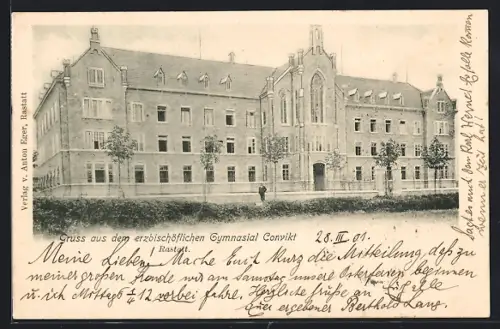 Verlag v. Anton Eger, Rastatt
Gruss aus dem erzbischöflichen Gymnasial Convikt
Rastatt.
28. III. 01.
Meine Lieben! Mache Euch kurz die Mitteilung, daß zu
meiner großen Freude wir am Samstag unsere Osterferien beginnen
u. ich Mittags 1/4 12 vorbei fahre. Herzliche Grüße an
Euer ergebener Berthold Lang.